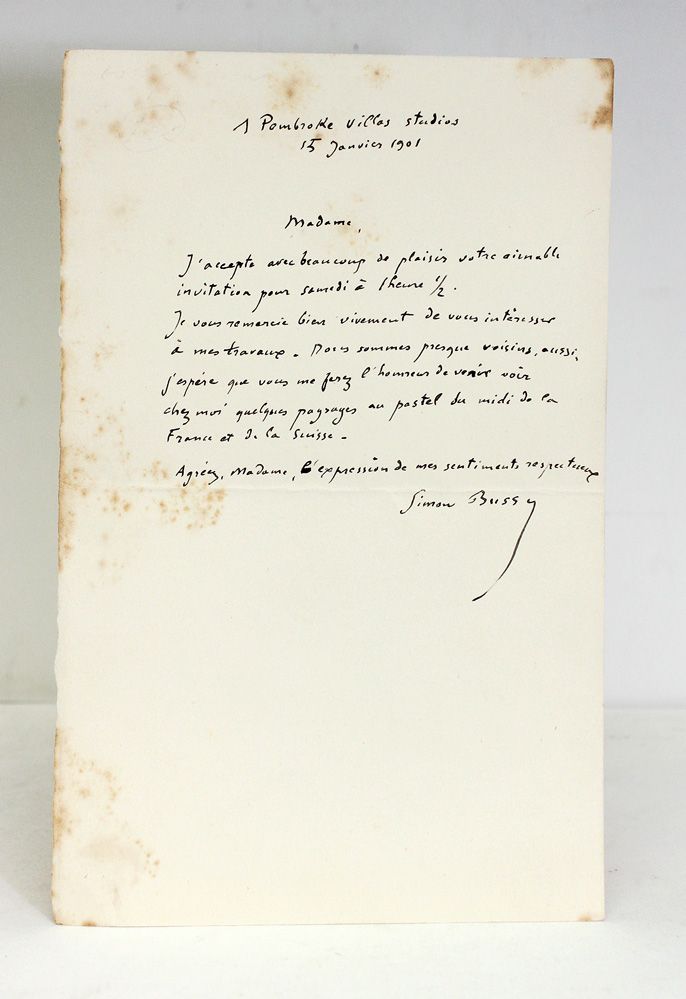 1 Pembroke Villas studios
15 Janvier 1901
Madame,
J'accepte avec beaucoup de plaisir votre aimable
invitation pour samedi à 1 heure 1/2.
Je vous remercie bien vivement de vous intéresser
à mes travaux. Nous sommes presque voisins, aussi,
j'espère que vous me ferez l'honneur de venir voir
chez moi quelques paysages au pastel du midi de la
France et de la Suisse.
Agréez, Madame, l'expression de mes sentiments respectueux
Simon Bussy